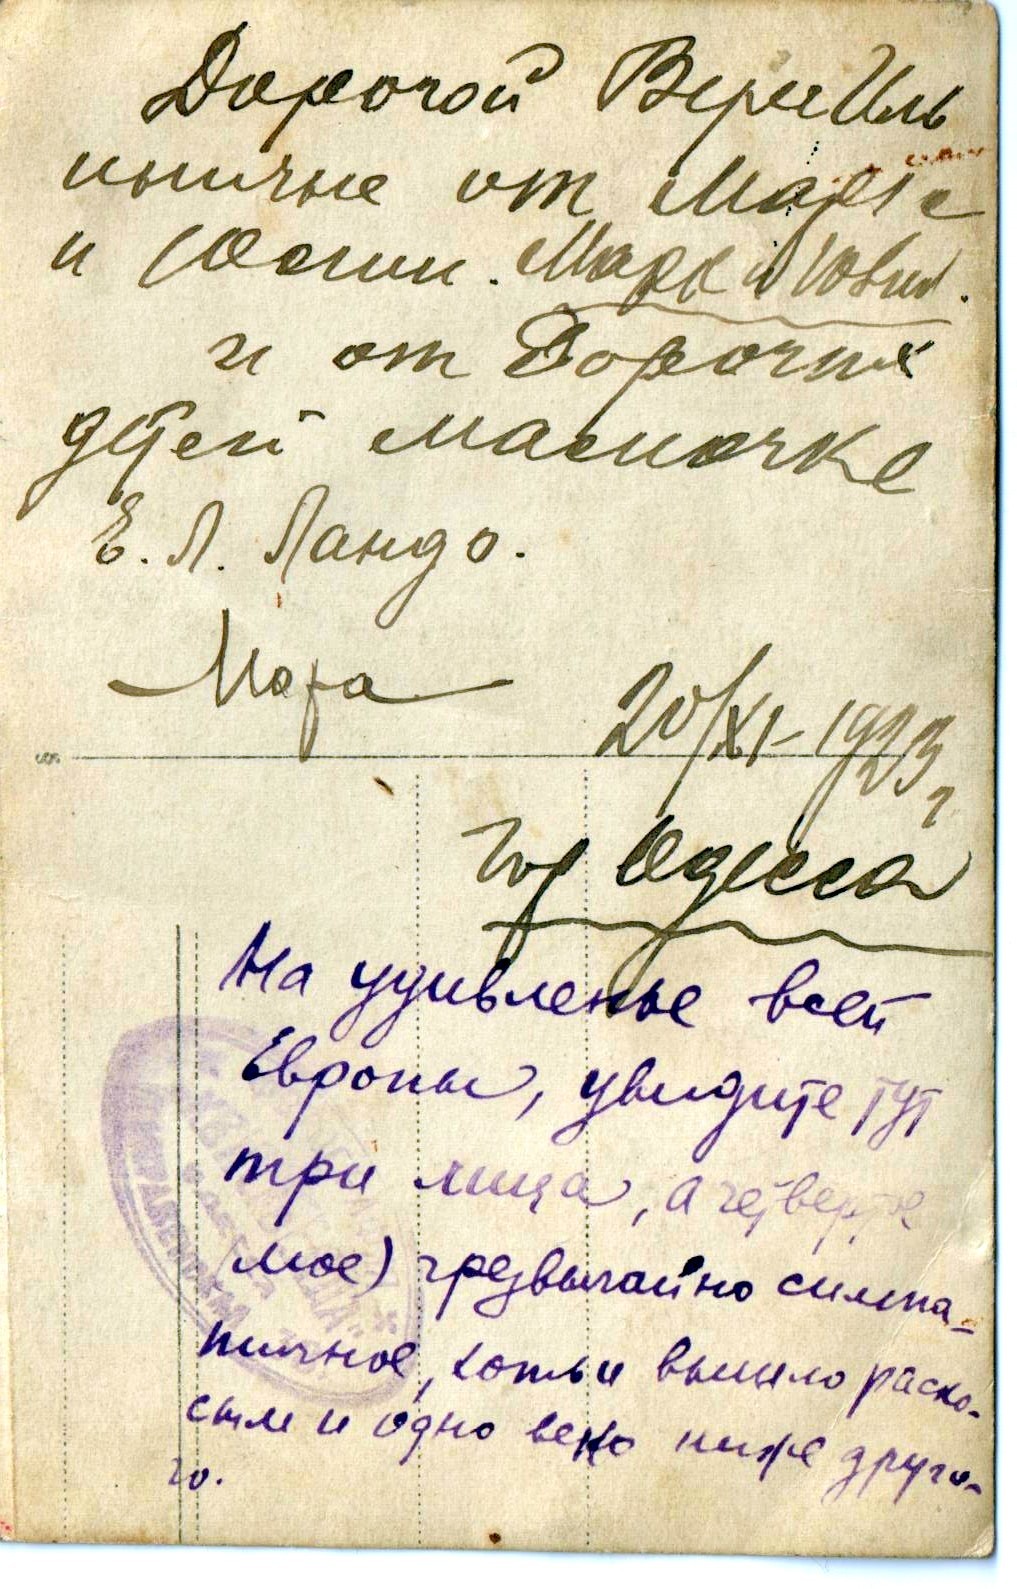 Дорогой Вере Иль
иничне от Марка
и Юлии. Марк и Юлия.
и от Дорогих
детей мамочке
Е. Л. Ландо.
Мара
20/XI – 1923 г
гор Одесса
На удивленье всей
Европы, увидите тут
три лица, а четвертое
(мое) чрезвычайно симпа-
тичное, хотя и вышло раско-
сым и одно веко ниже друго-
го.